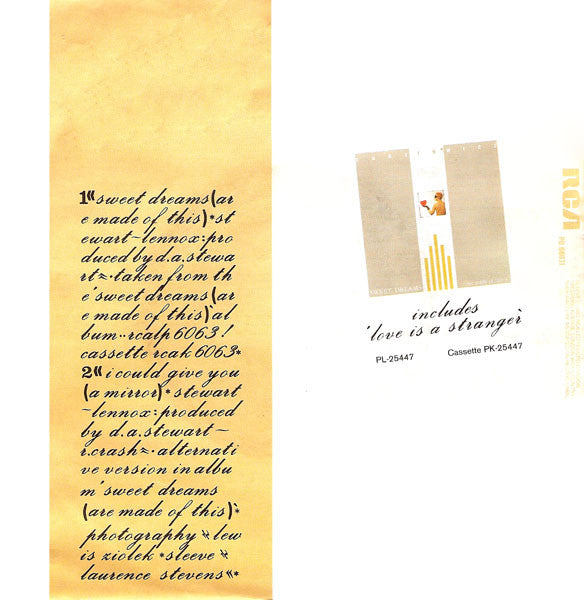 1"sweet dreams(ar
e made of this)*st
ewart-lennox:pro
duced by d.a.stewa
rt≈·taken from th
e'sweet dreams(ar
e made of this)'al
bum··rcalp6063!
cassette rcak6063*
2"i could give you
(a mirror)*stewart
-lennox:produced
by d.a.stewart-
r.crash≈·alternati
ve version in albu
m'sweet dreams
(are made of this)'*
photography # lew
is ziolek *sleeve #
laurence stevens"*
EURYTHMICS
SWEET DREAMS
includes
'love is a stranger'
PL-25447 Cassette PK-25447
RCA